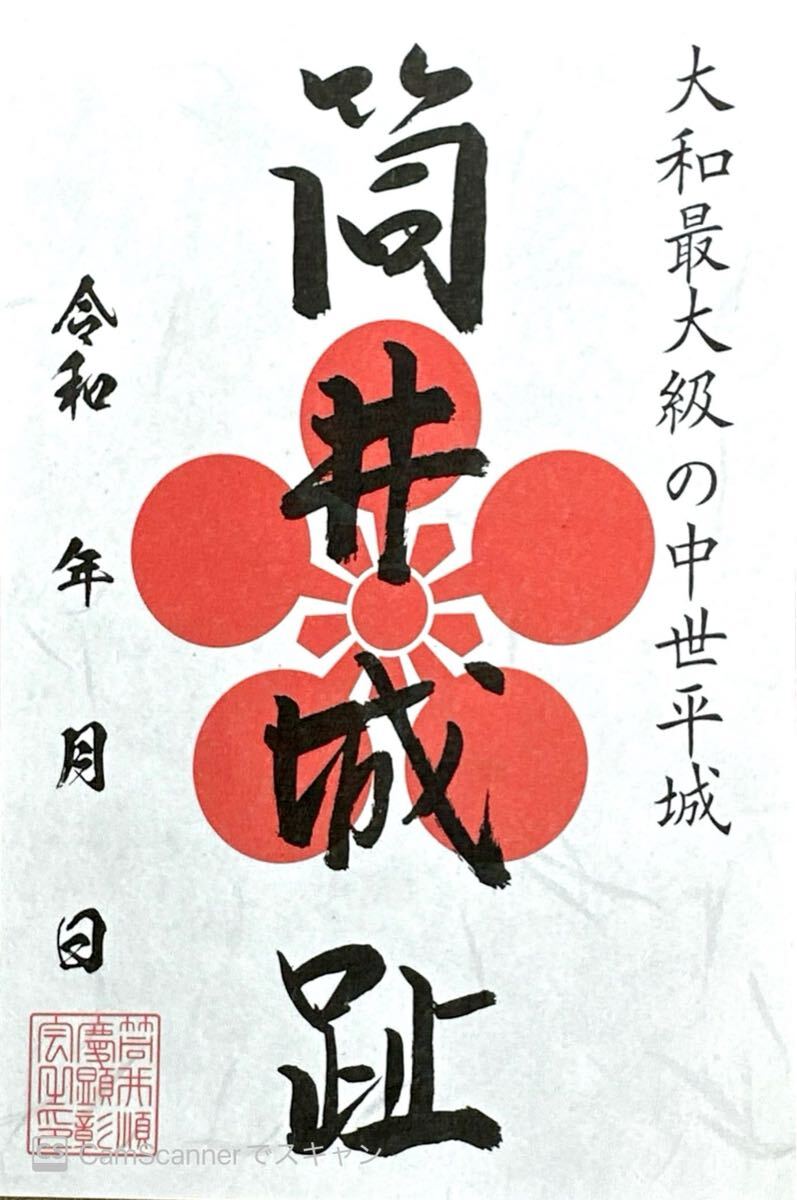 大和最大級の中世平城
筒井城趾
令和 年 月 日
筒井順
慶顕彰
会之印
CS CamScannerでスキャン